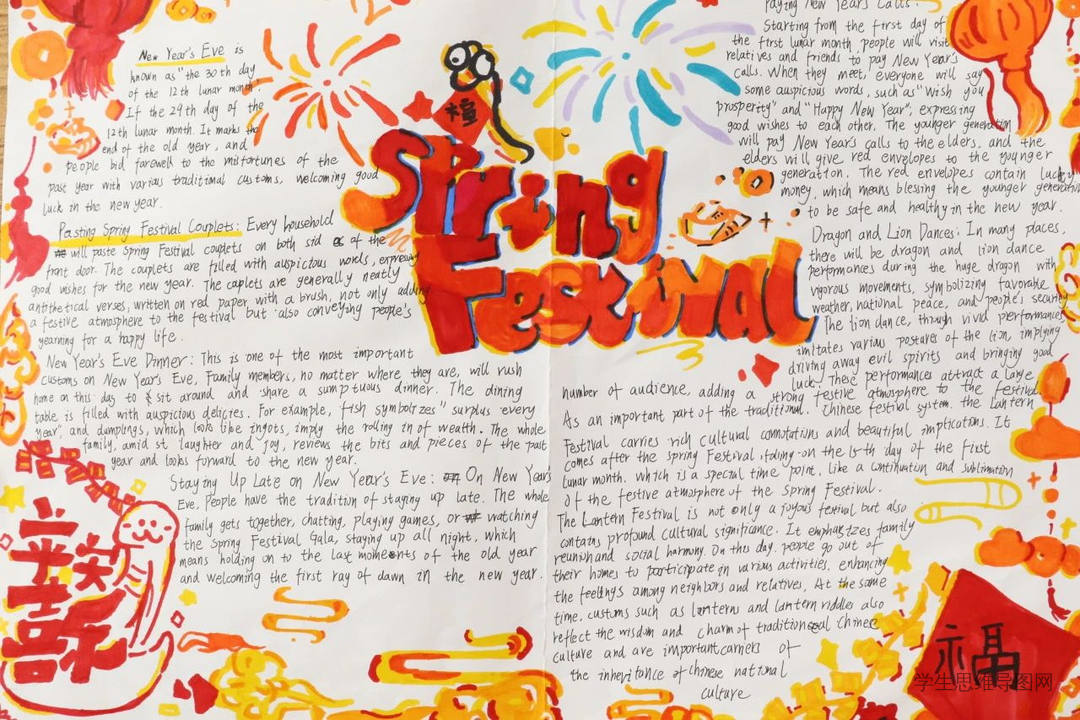 Spring
Festival
福
New Year's Eve is
known as "the 30th day
of the 12th lunar month".
If the 29th day of the
12th lunar month. It marks the
end of the old year, and
people bid farewell to the misfortunes of the
past year with various traditional customs, welcoming good
luck in the new year.
Pasting Spring Festival Couplets: Every household
will paste Spring Festival couplets on both sid of the
front door. The couplets are filled with auspicious words, expressing
good wishes for the new year. The caplets are generally neatly
antithetical verses, written on red paper with a brush, not only adding
a festive atmosphere to the festival but also conveying people's
yearning for a happy life.
New Year's Eve Dinner: This is one of the most important
customs on New Year's Eve, Family members, no matter where they are, will rush
home on this day to sit around and share a sumptuous dinner. The dining
table is filled with auspicious delicies. For example, "fish symbolizes" surplus every
year", and dumplings, which look like ingots, imply the rolling in of wealth. The whole
family, amid st laughter and joy, reviews the bits and pieces of the past
year and looks forward to the new year.
Staying Up Late on New Year's Eve: On New Year's
Eve. People have the tradition of staying up late. The whole
family gets together, chatting, playing games, or watching
the Spring Festival Gala, staying up all night, which
means holding on to the last moments of the old year
and welcoming the first ray of dawn in the new year.
Paying New Year's Calls:
Starting from the first day of
the first lunar month, people will visit
relatives and friends to pay New Year's
calls. When they meet, everyone will say
some auspicious words, such as "Wish you
prosperity" and "Happy New Year", expressing
good wishes to each other. The younger generation
will pay New Year's calls to the elders, and the
elders will give red envelopes to the younger
generation. The red envelopes contain lucky
money, which means blessing the younger generation
to be safe and healthy in the new year.
Dragon and Lion Dances: In many places,
there will be dragon and lion dance
performances during the huge dragon with
vigorous movements, symbolizing favorable
weather, national peace, and people's security
The lion dance, through vivid performances
imitates various postures of the lion, implying
driving away evil spirits and bringing good
luck. These performances attract a large
number of audience, adding a strong festive atmosphere to the festival
As an important part of the traditional. Chinese festival system, the Lantern
Festival carries rich cultural connotations and beautiful implications. It
comes after the spring Festival, on the 15th day of the first
lunar month, which is a special time point, like a continuation and sublimation
of the festive atmosphere of the Spring Festival.
The Lantern Festival is not only a joyous festival, but also
contains profound cultural significance. It emphasizes family
reunion and social harmony. On this day, people go out of
their homes to participate in various activities, enhancing
the feelings among neighbors and relatives. At the same
time, customs such as lanterns and lantern riddles also
reflect the wisdom and charm of traditional Chinese
culture and are important carriers of
the inheritance of chinese national
culture
福
学生思维导图网